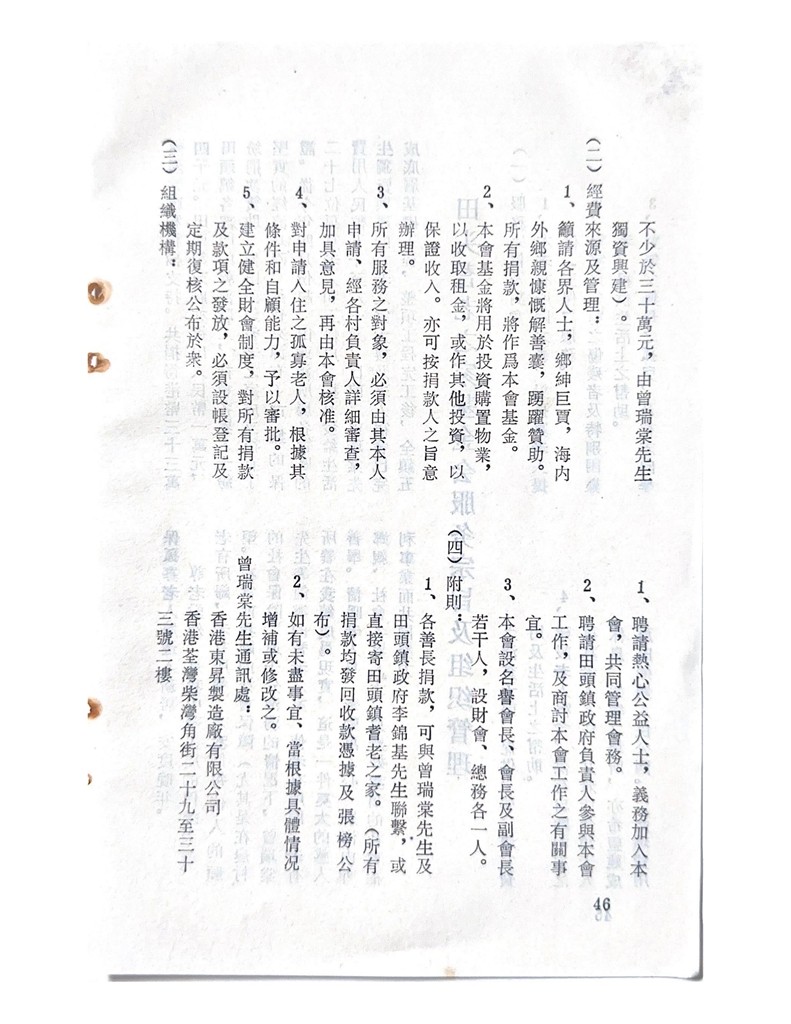 不少於三十萬元，由曾瑞棠先生
獨資興建）。
（二）經費來源及管理：
1、籲請各界人士，鄉紳巨賈，海內
外鄉親慷慨解善囊，踴躍贊助。
所有捐款，將作爲本會基金。
2、本會基金將用於投資購置物業，
以收取租金，或作其他投資，以
保證收入。亦可按捐款人之旨意
辦理。
3、所有服務之對象，必須由其本人
申請、經各村負責人詳細審查，
加具意見，再由本會核准。
4、對申請入住之孤寡老人，根據其
條件和自顧能力，予以審批。
5、建立健全財會制度，對所有捐款
及款項之發放，必須設帳登記及
定期復核公布於衆。
（三）組織機構：
1、聘請熱心公益人士，義務加入本
會，共同管理會務。
2、聘請田頭鎮政府負責人參與本會
工作，及商討本會工作之有關事
宜。
3、本會設名譽會長、會長及副會長
若干人，設財會、總務各一人。
（四）附則：
1、各善長捐款，可與曾瑞棠先生及
田頭鎮政府李錦基先生聯繫，或
直接寄田頭鎮耆老之家。（所有
捐款均發回收款憑據及張榜公
布）。
2、如有未盡事宜、當根據具體情况
增補或修改之。
曾瑞棠先生通訊處：
香港東昇製造廠有限公司
香港荃灣柴灣角街二十九至三十
三號二樓
46